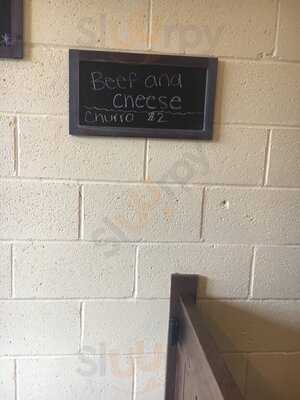 Beef and
cheese
Churro $2
sluurpy
sluurpy
sluurpy